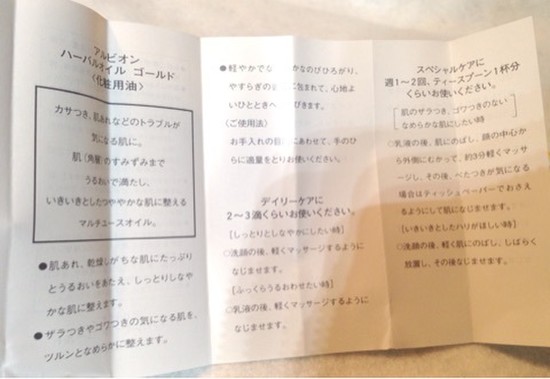 アルビオン
ハーバルオイル ゴールド
〈化粧用油〉
カサつき、肌あれなどのトラブルが
気になる肌に。
肌(角層)のすみずみまで
うるおいで満たし、
いきいきとしたつややかな肌に整える
マルチユースオイル。
●肌あれ、乾燥しがちな肌にたっぷり
とうるおいをあたえ、しっとりしなや
かな肌に整えます。
●ザラつきやゴワつきの気になる肌を、
ツルンとなめらかに整えます。
●軽やかで かなのびひろがり、
やすらぎの に包まれて、心地よ
いひとときへ びきます。
〈ご使用法〉
お手入れの にあわせて、手のひ
らに適量をとりお使いください。
デイリーケアに
2〜3滴くらいお使いください。
[しっとりとしなやかにしたい時]
○洗顔の後、軽くマッサージするように
なじませます。
[ふっくらうるおわせたい時]
○乳液の後、軽くマッサージするように
なじませます。
スペシャルケアに
週1〜2回、ティースプーン1杯分
くらいお使いください。
[肌のザラつき、ゴワつきのない
なめらかな肌にしたい時]
○乳液後、肌にのばし、顔の中心か
ら外側にむかって、約3分軽くマッサ
ージし、その後、べたつきが気になる
場合はティッシュペーパーでおさえ
るようにして肌になじませます。
[いきいきとしたハリがほしい時]
○洗顔の後、軽く肌にのばし、しばらく
放置し、その後なじませます。